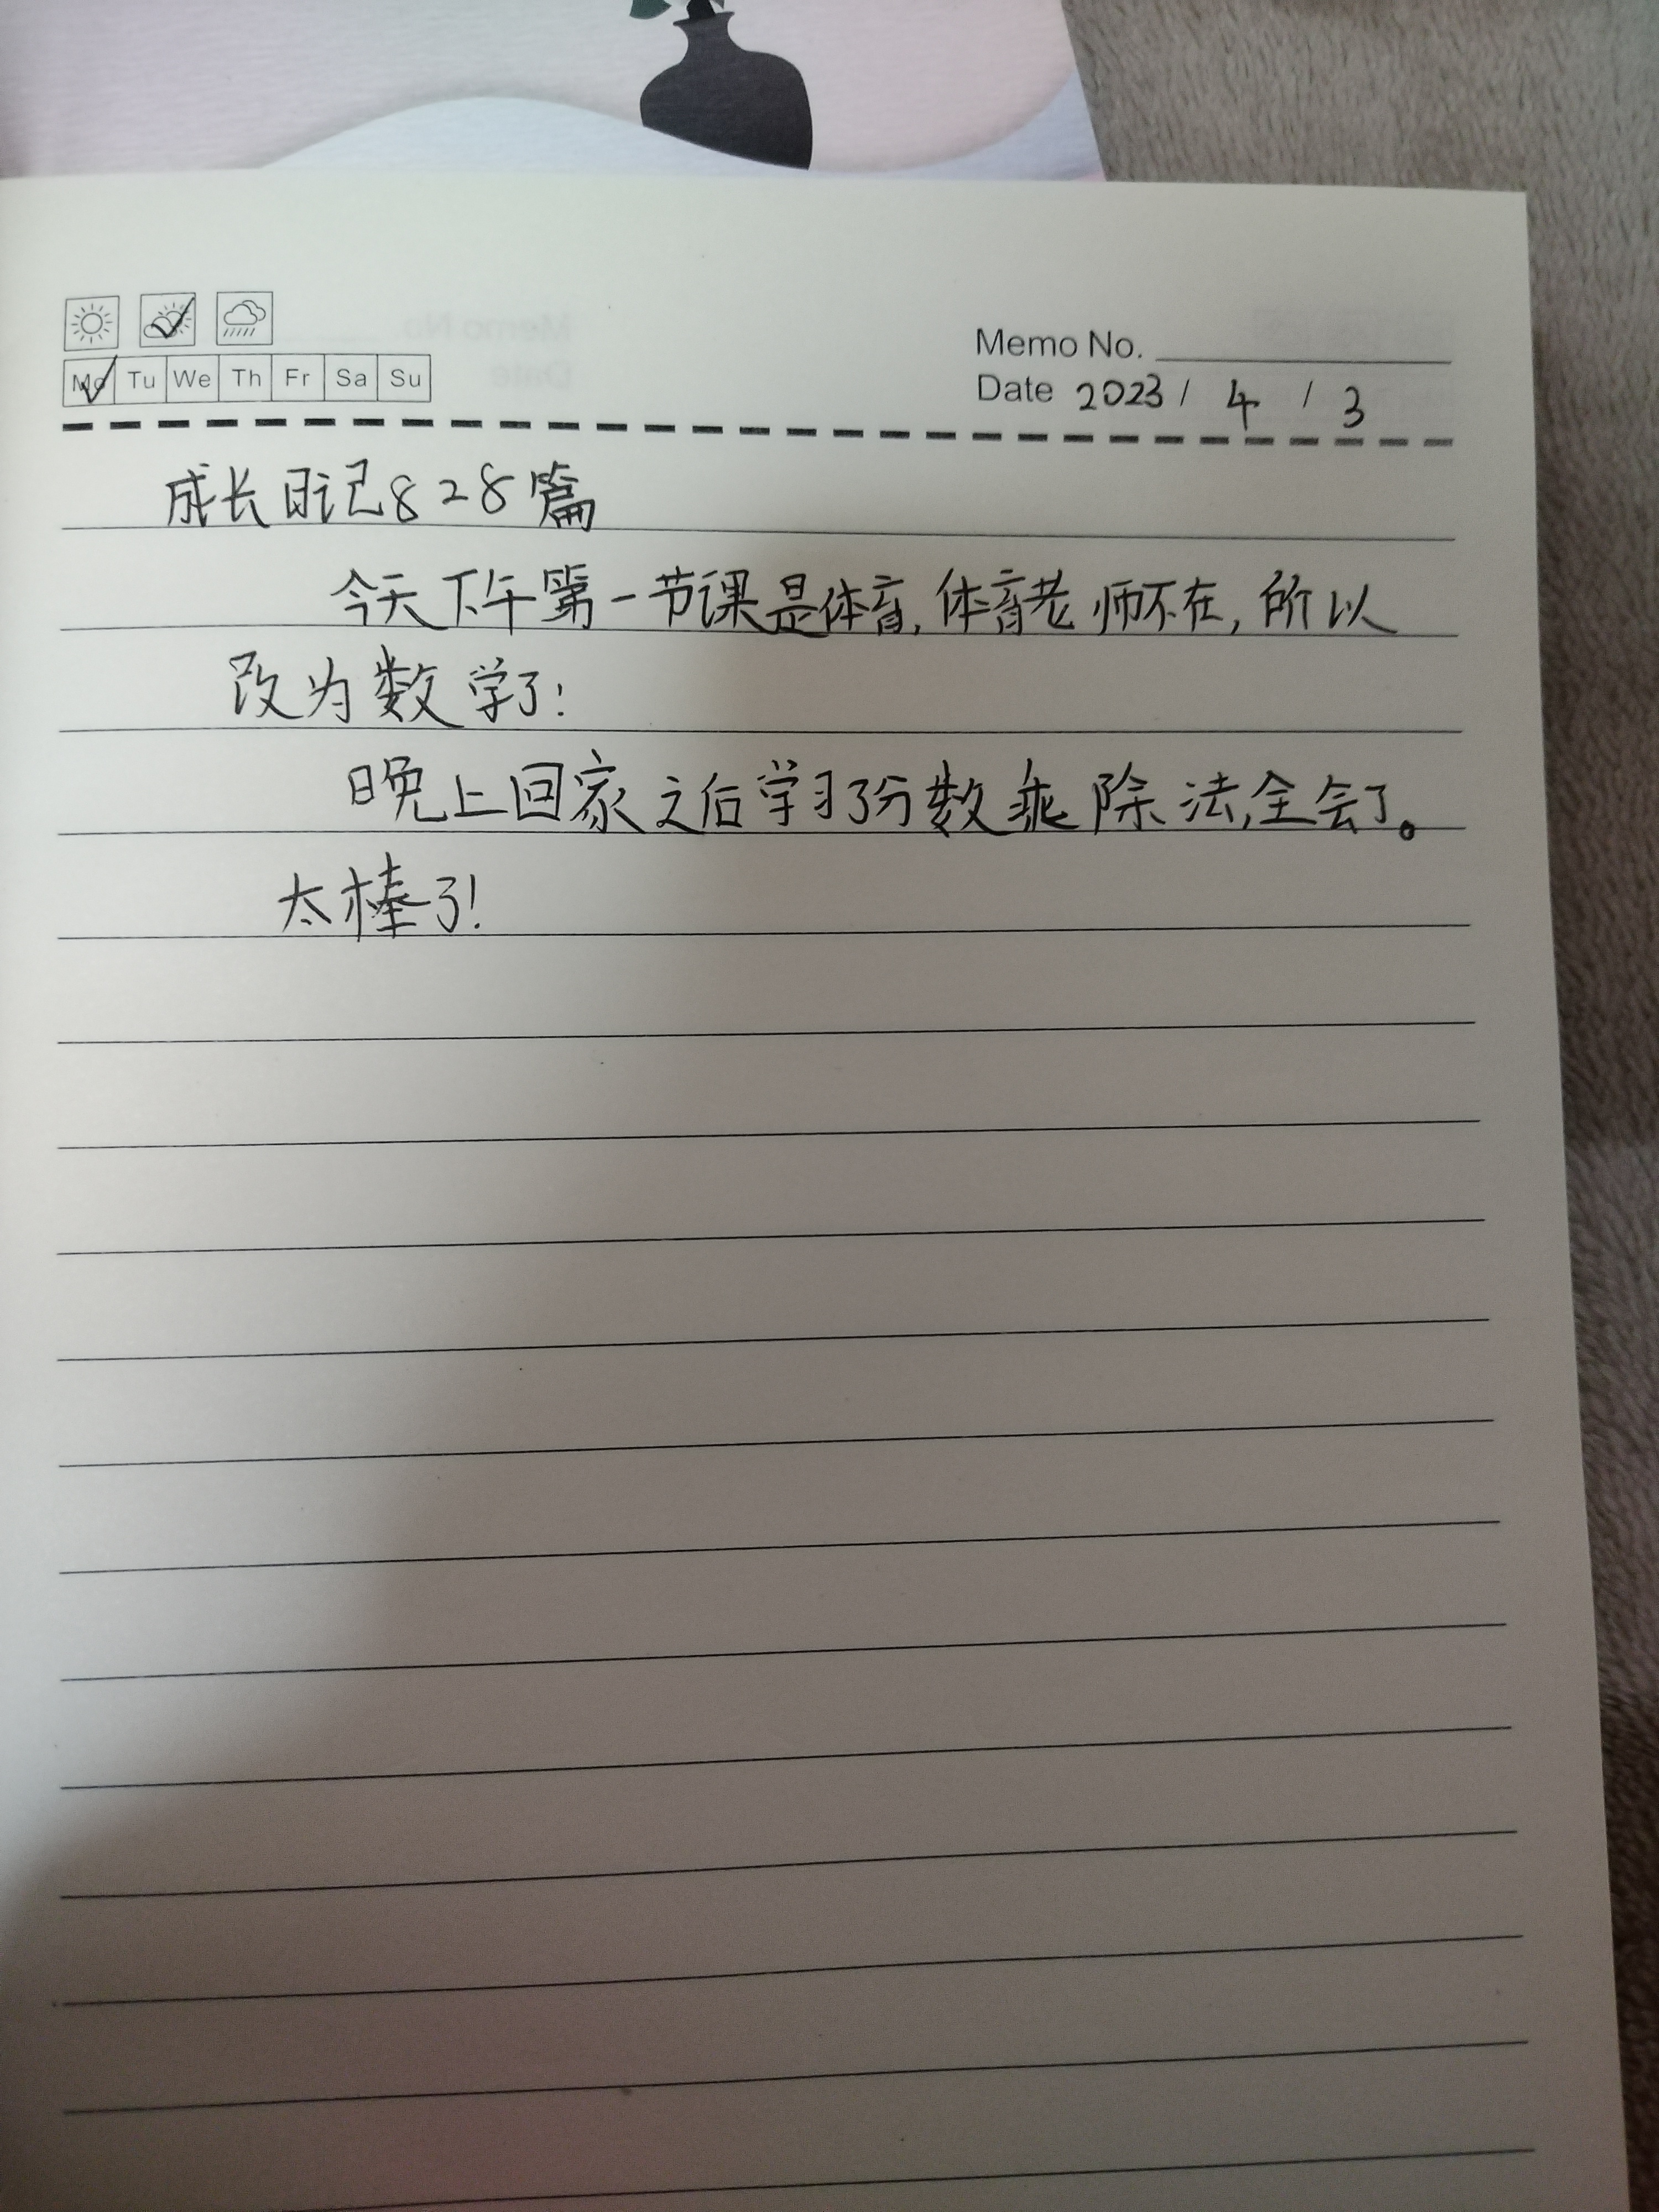 Memo No.
Mo Tu We Th Fr Sa Su
Date 2023 / 4 / 3
成长日记828篇
今天下午第一节课是体育,体育老师不在,所以
改为数学了!
晚上回家之后学习了分数乘除法,全会了。
太棒了!